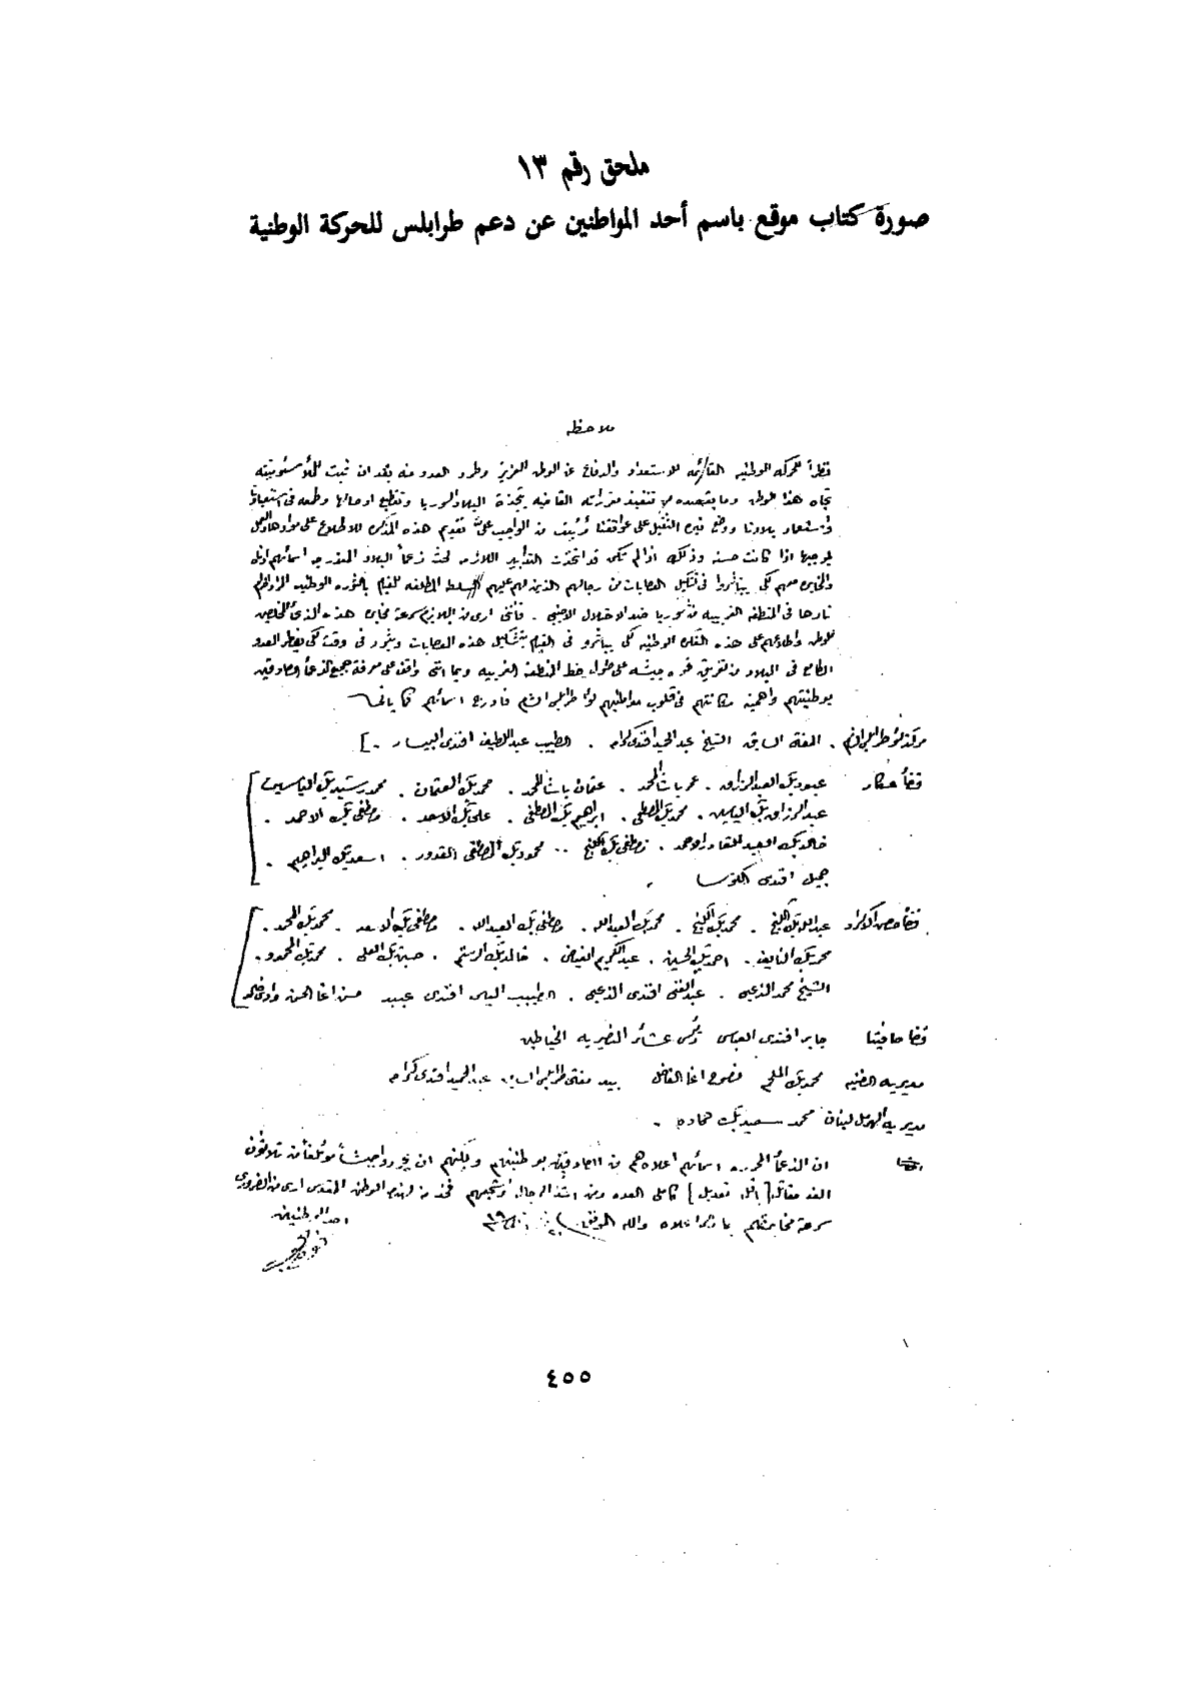 ملحق رقم ١٣
صورة كتاب موقع باسم أحد المواطنين عن دعم طرابلس للحركة الوطنية
ملاحظه
نظراً للحركة الوطنيه القائمه للاستعداد والدفاع عن الوطن العزيز وطرد العدو منه بعد ان ثبت للملأ سوء نيته
تجاه هذا الوطن وما يقصده من تنفيذ مقرراته القاضيه بتجزئة البلاد السوريا وتقطيع اوصالها وطمعه في
بلادنا ووضع نيره الثقيل على عواتقنا رأيت من الواجب علي تقديم هذه المذكره للاطلاع على موادها والعمل
بموجبها اذا كانت حسنه وذلك اذا لم تكن قد اتخذت التدابير اللازمه لحث زعماً البلاد المندرجه اسمائهم ادناه
والمخابره معهم لكي يباشروا في تشكيل العصابات من رجالهم الذين لهم عليهم السلطه المطلقه للقيام بالثوره الوطنيه
نارها في المنطقه الغربيه من سوريا ضد الاحتلال الاجنبي . فأنني ارى من اللازم سرعة مخابرة هذه
للوطن واطلاعهم على هذه الفكره الوطنيه لكي يباشرو في القيام بتشكيل هذه العصابات في وقت لكي يضطر العدو
الطامع في البلاد من تفريق قوة جيشه على طول خط المنطقة الغربيه وبما انني واقف على معرفة جميع الزعمأ الصادقين
بوطنيتهم واهمية مكانتهم في قلوب مواطنيهم لوأ طرابلس الشام فادرج اسمائهم كما يأتي
مركز لوأ طرابلس الشام . المفتي السابق الشيخ عبد الحميد افندي كرامه . الطبيب عبد اللطيف افندي البيسار .
قضأ عكار عبود بك العبد الرزاق . عمر باشا المحمد . عثمان باشا المحمد . محمد بك العثمان . محمد رشيد بك الياسين
عبد الرزاق بك الياسين . محمد بك المصطفى . ابراهيم بك المصطفى . علي بك الاسعد . مصطفى بك الاحمد .
خالد بك العبد القادر الاحمد . مصطفى بك . محمود بك المصطفى القدور . اسعد بك الابراهيم .
جميل افندي
قضأ حصن الاكراد عبد الله بك . محمد بك . محمد بك العبد الله . مصطفى بك العبد الله . مصطفى بك الاسعد . محمد بك المحمد .
محمد بك النايف . احمد بك الحسين . عبد الكريم الفياض . خالد بك الرستم . حسن بك العلي . محمد بك المحمود .
الشيخ محمد الذعبي . عبد الغني افندي الذعبي . الطبيب الياس افندي عبيد حسن اغا الحسن
قضا صافيتا جابر افندي العباس رئيس عشائر النصيريه الخياطين
مديريه الضنيه محمد بك الملحم نصوح اغا الفاضل بيد مفتي طرابلس السابق عبد الحميد افندي كرامه
مديريه الهرمل لبنان محمد سعيد بك حماده .
ان الزعمأ المحرره اسمائهم اعلاه هم من الصادقين بوطنيتهم ويمكنهم ان يجردوا جيشاً مؤلفاً من ثلاثون
الف مقاتل [ باقل تعديل ] كاملي العده ومن اشد الرجال واشجعهم لهذا الوطن المقدس ارى من الضروري
سرعة مخابرتهم بما ذكر اعلاه والله الموفق
احد الوطنيين
٤٥٥